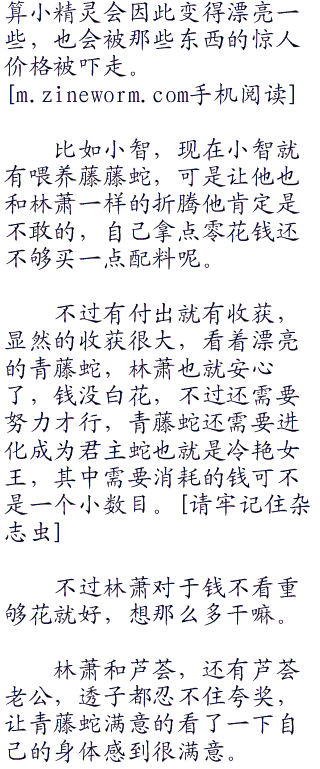 算小精灵会因此变得漂亮一
些，也会被那些东西的惊人
价格被吓走。
[m.zineworm.com手机阅读]
比如小智，现在小智就
有喂养藤藤蛇，可是让他也
和林萧一样的折腾他肯定是
不敢的，自己拿点零花钱还
不够买一点配料呢。
不过有付出就有收获，
显然的收获很大，看着漂亮
的青藤蛇，林萧也就安心
了，钱没白花，不过还需要
努力才行，青藤蛇还需要进
化成为君主蛇也就是冷艳女
王，其中需要消耗的钱可不
是一个小数目。[请牢记住杂
志虫]
不过林萧对于钱不看重
够花就好，想那么多干嘛。
林萧和芦荟，还有芦荟
老公，透子都忍不住夸奖，
让青藤蛇满意的看了一下自
己的身体感到很满意。